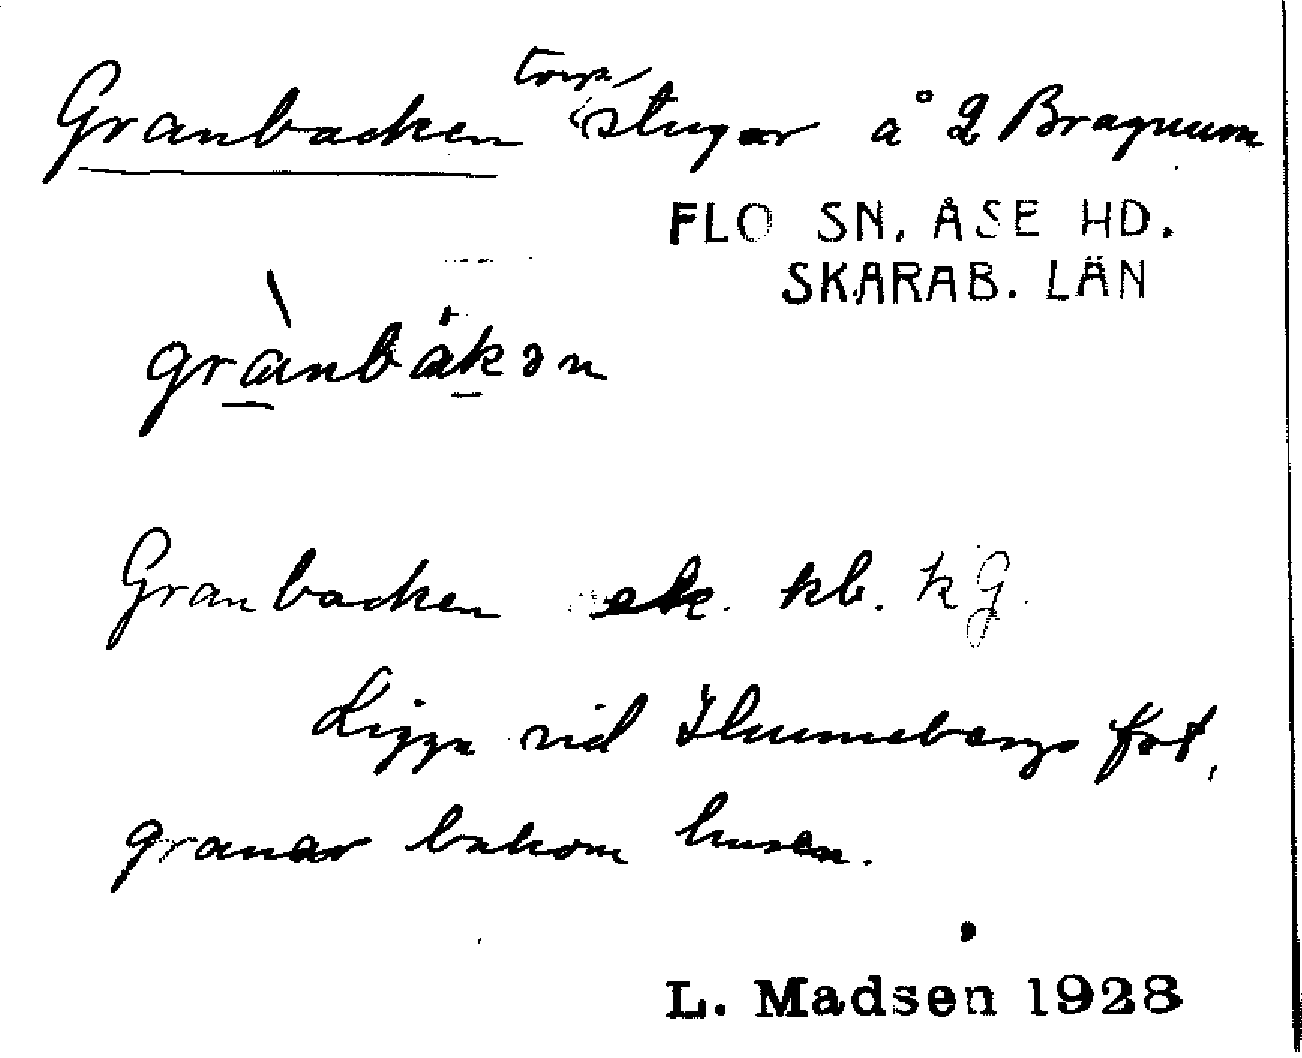 Granbacken torp/stugor å 2 Bragnum
FLO SN. ÅSE HD.
SKARAB. LÄN
grànbákən
Granbacken ek. kb. kG.
Ligga vid Hunnebergs fot,
granar bakom husen.
L. Madsen 1928